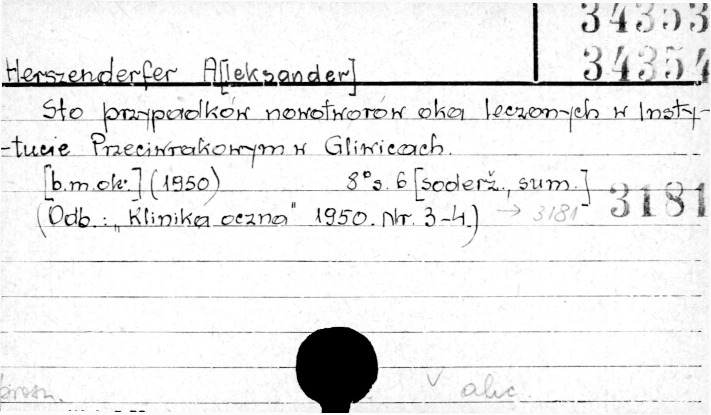 34353
34354
Herszenderfer A[leksander]
Sto przypadków nowotworów oka leczonych w Insty-
-tucie Przeciwrakowym w Gliwicach.
[b.m.ok.] (1950) 8° s. 6 [soderž., sum.]
(Odb.: „Klinika oczna" 1950. Nr. 3-4.) → 3181 3181
alic.